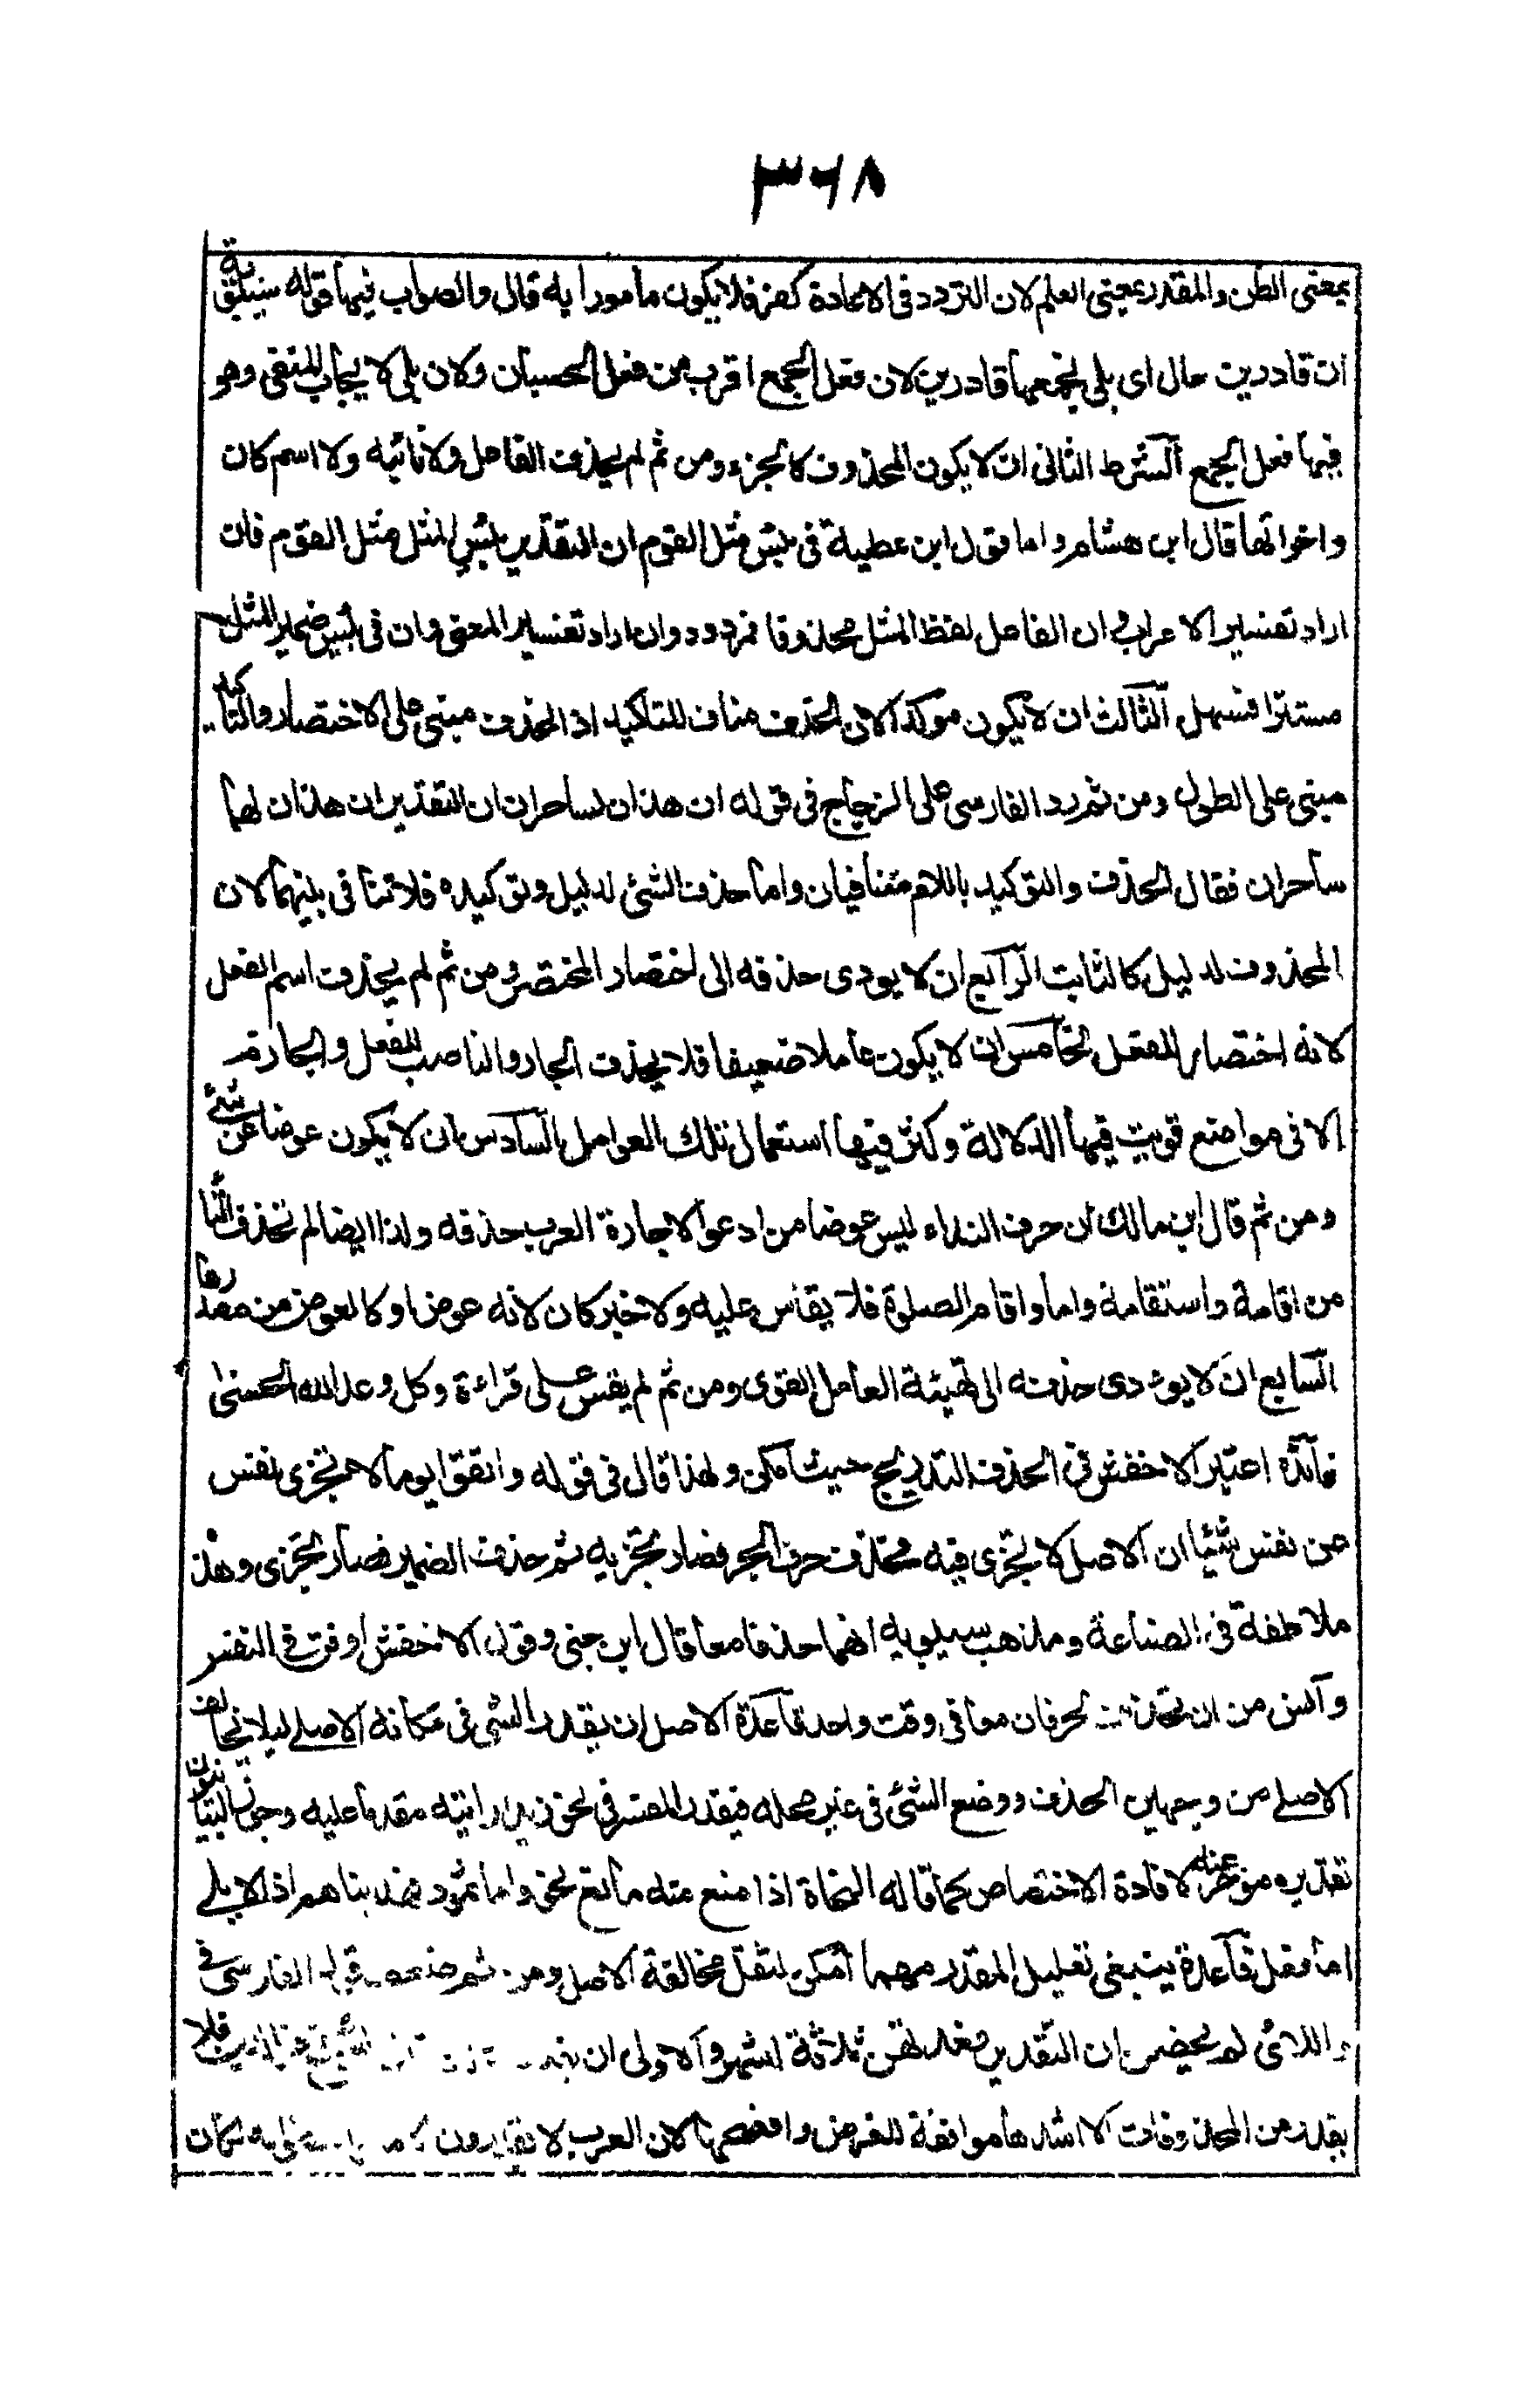 ٣٦٨
بمعنى الظن والمقدر بمعنى العلم لان التردد فى الاعادة كفر فلا يكون مأمورا به قال والصواب فيها قول سيبويه
ان قادرين حال اى بلى نجمعها قادرين لان فعل الجمع اقرب من فعل الحسبان ولان بلى لايجاب المنفى وهو
فيها فعل الجمع الشرط الثانى ان لا يكون المحذوف كالجزء ومن ثم لم يحذف الفاعل ولا نائبه ولا اسم كان
واخواتها قال ابن هشام واما قول ابن عطية فى بئس مثل القوم ان التقدير بئس المثل مثل القوم فان
اراد تفسير الاعراب ان الفاعل لفظ المثل محذوفا فمردود وان اراد تفسير المعنى وان فى بئس ضمير المثل
مستترا فسهل الثالث ان لا يكون موكدا لان الحذف مناف للتاكيد اذ الحذف مبنى على الاختصار والتاكيد
مبنى على الطول ومن ثم رد الفارسى على الزجاج فى قوله ان هذان لساحران ان التقدير ان هذان لهما
ساحران فقال الحذف والتوكيد باللام متنافيان واما حذف الشئ لدليل وتوكيده فلا تنافى بينهما لان
المحذوف لدليل كالثابت الرابع ان لا يودى حذفه الى اختصار المختصر ومن ثم لم يحذف اسم الفعل
لانه اختصار للفعل الخامس ان لا يكون عاملا ضعيفا فلا يحذف الجار والناصب للفعل والجازم
الا فى مواضع قويت فيها الدلالة وكثر فيها استعمال تلك العوامل السادس ان لا يكون عوضا عن شئ
ومن ثم قال ابن مالك ان حرف النداء ليس عوضا من ادعو لاجازة العرب حذفه ولذا ايضا لم تحذف التا
من اقامة واستقامة واما واقام الصلوة فلا يقاس عليه ولا خبر كان لانه عوض او كالعوض من مصدرها
السابع ان لا يودى حذفه الى تهيئة العامل القوى ومن ثم لم يقس على قراءة وكل وعد الله الحسنى
فائدة اعتبر الاخفش فى الحذف التدريج حيث امكن ولهذا قال فى قوله واتقوا يوما لا تجزى نفس
عن نفس شيئا ان الاصل لا تجزى فيه فحذف حرف الجر فصار تجزيه ثم حذف الضمير فصار تجزى وهذه
ملاطفة فى الصناعة ومذهب سيبويه انهما حذفا معا قال ابن جنى وقول الاخفش اوفق فى النفس
وآنس من ان يحذف الحرفان معا فى وقت واحد قاعدة الاصل ان يقدر الشئ فى مكانه الاصلى ليلا يخالف
الاصلى من وجهين الحذف ووضع الشئ فى غير محله فيقدر المفسر فى نحو زيدا رايته مقدما عليه وجوز البيانيون
تقديره موخرا عنه لافادة الاختصاص كما قاله النحاة اذا منع منه مانع نحو واما ثمود فهديناهم اذ لا يلى
اما فعل قاعدة ينبغى تقليل المقدر مهما امكن لتقل مخالفة الاصل ومن ثم ضعف قول الفارسى فى
واللائى لم يحضن ان التقدير فعدتهن ثلاثة اشهر والاولى ان فلا
يقدر من المحذوفات الا اشدها موافقة للغرض وافصحها لان العرب لا يقدرون